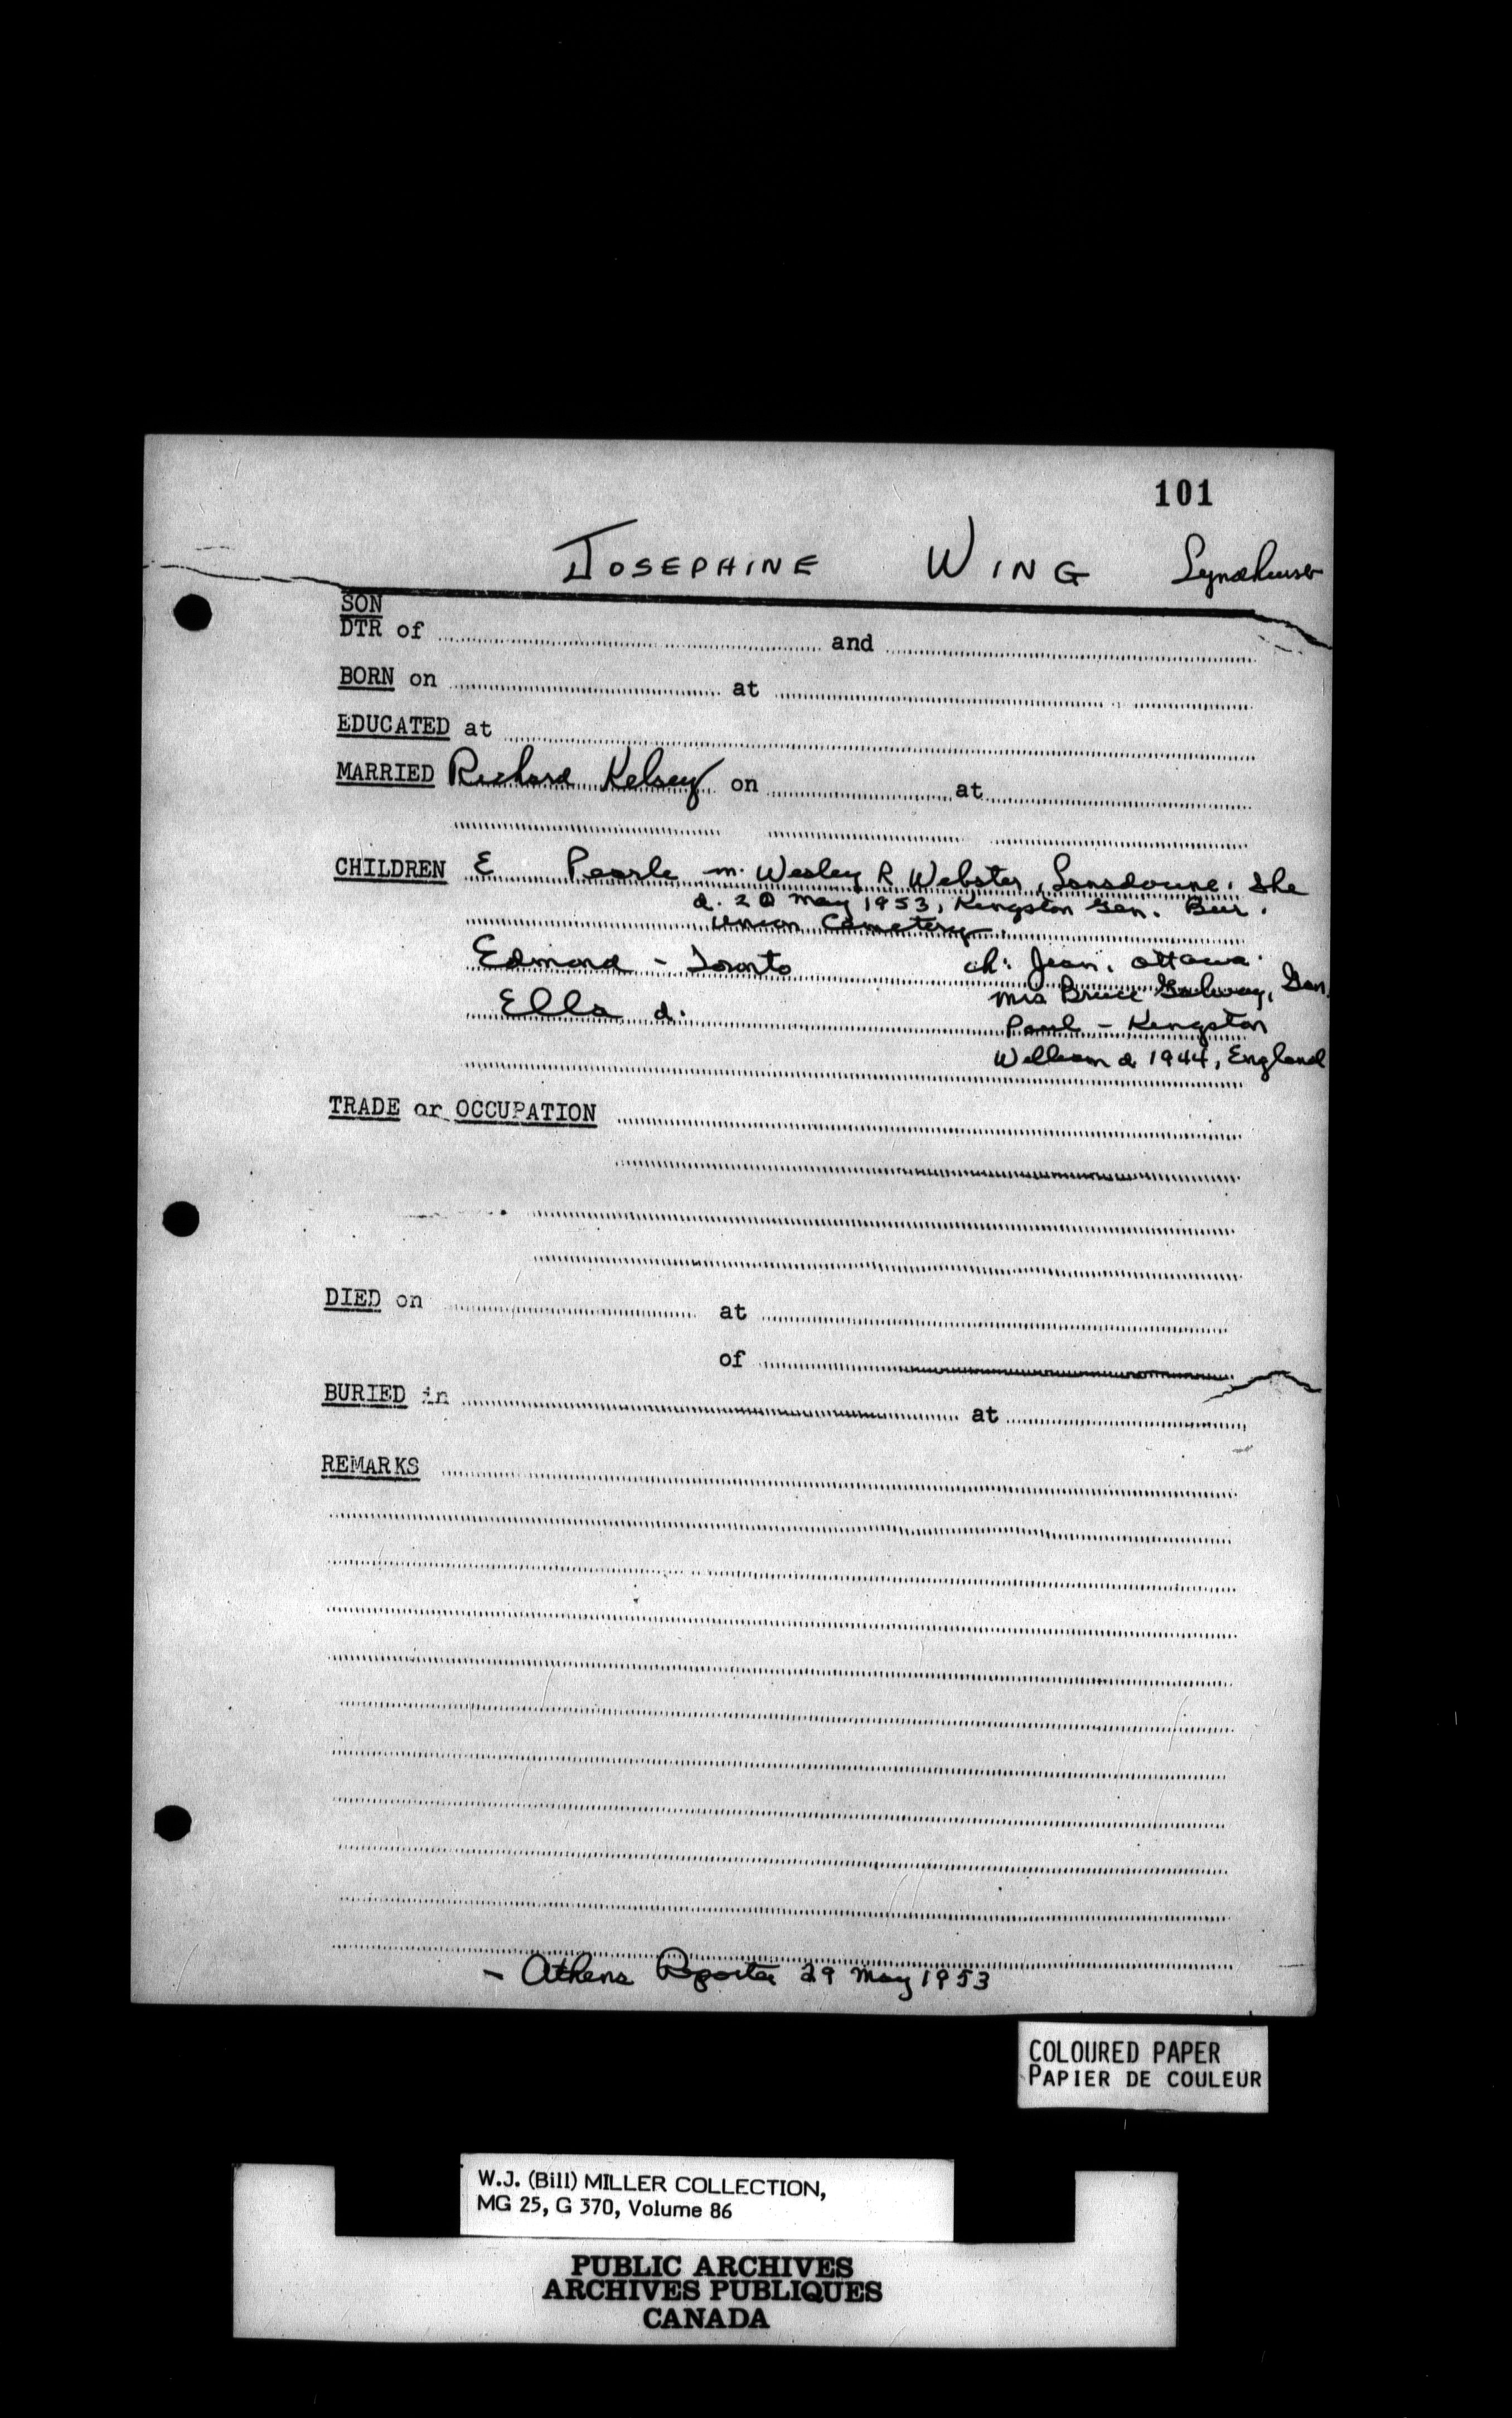 101
JOSEPHINE WING Lyndhurst
SON
DTR of and
BORN on at
EDUCATED at
MARRIED Richard Kelsey on at
CHILDREN E Pearle m. Wesley R Webster, Lansdowne. She
d. 20 May 1953, Kingston Gen. Bur.
Union Cemetery.
Edmond - Toronto ch: Jean, Ottawa.
Ella d. Mrs Bruce Galway, Gan.
Paul - Kingston
William d 1944, England
TRADE or OCCUPATION
DIED on at
of
BURIED in at
REMARKS
- Athens Reporter 29 May 1953
COLOURED PAPER
PAPIER DE COULEUR
W.J. (Bill) MILLER COLLECTION,
MG 25, G 370, Volume 86
PUBLIC ARCHIVES
ARCHIVES PUBLIQUES
CANADA